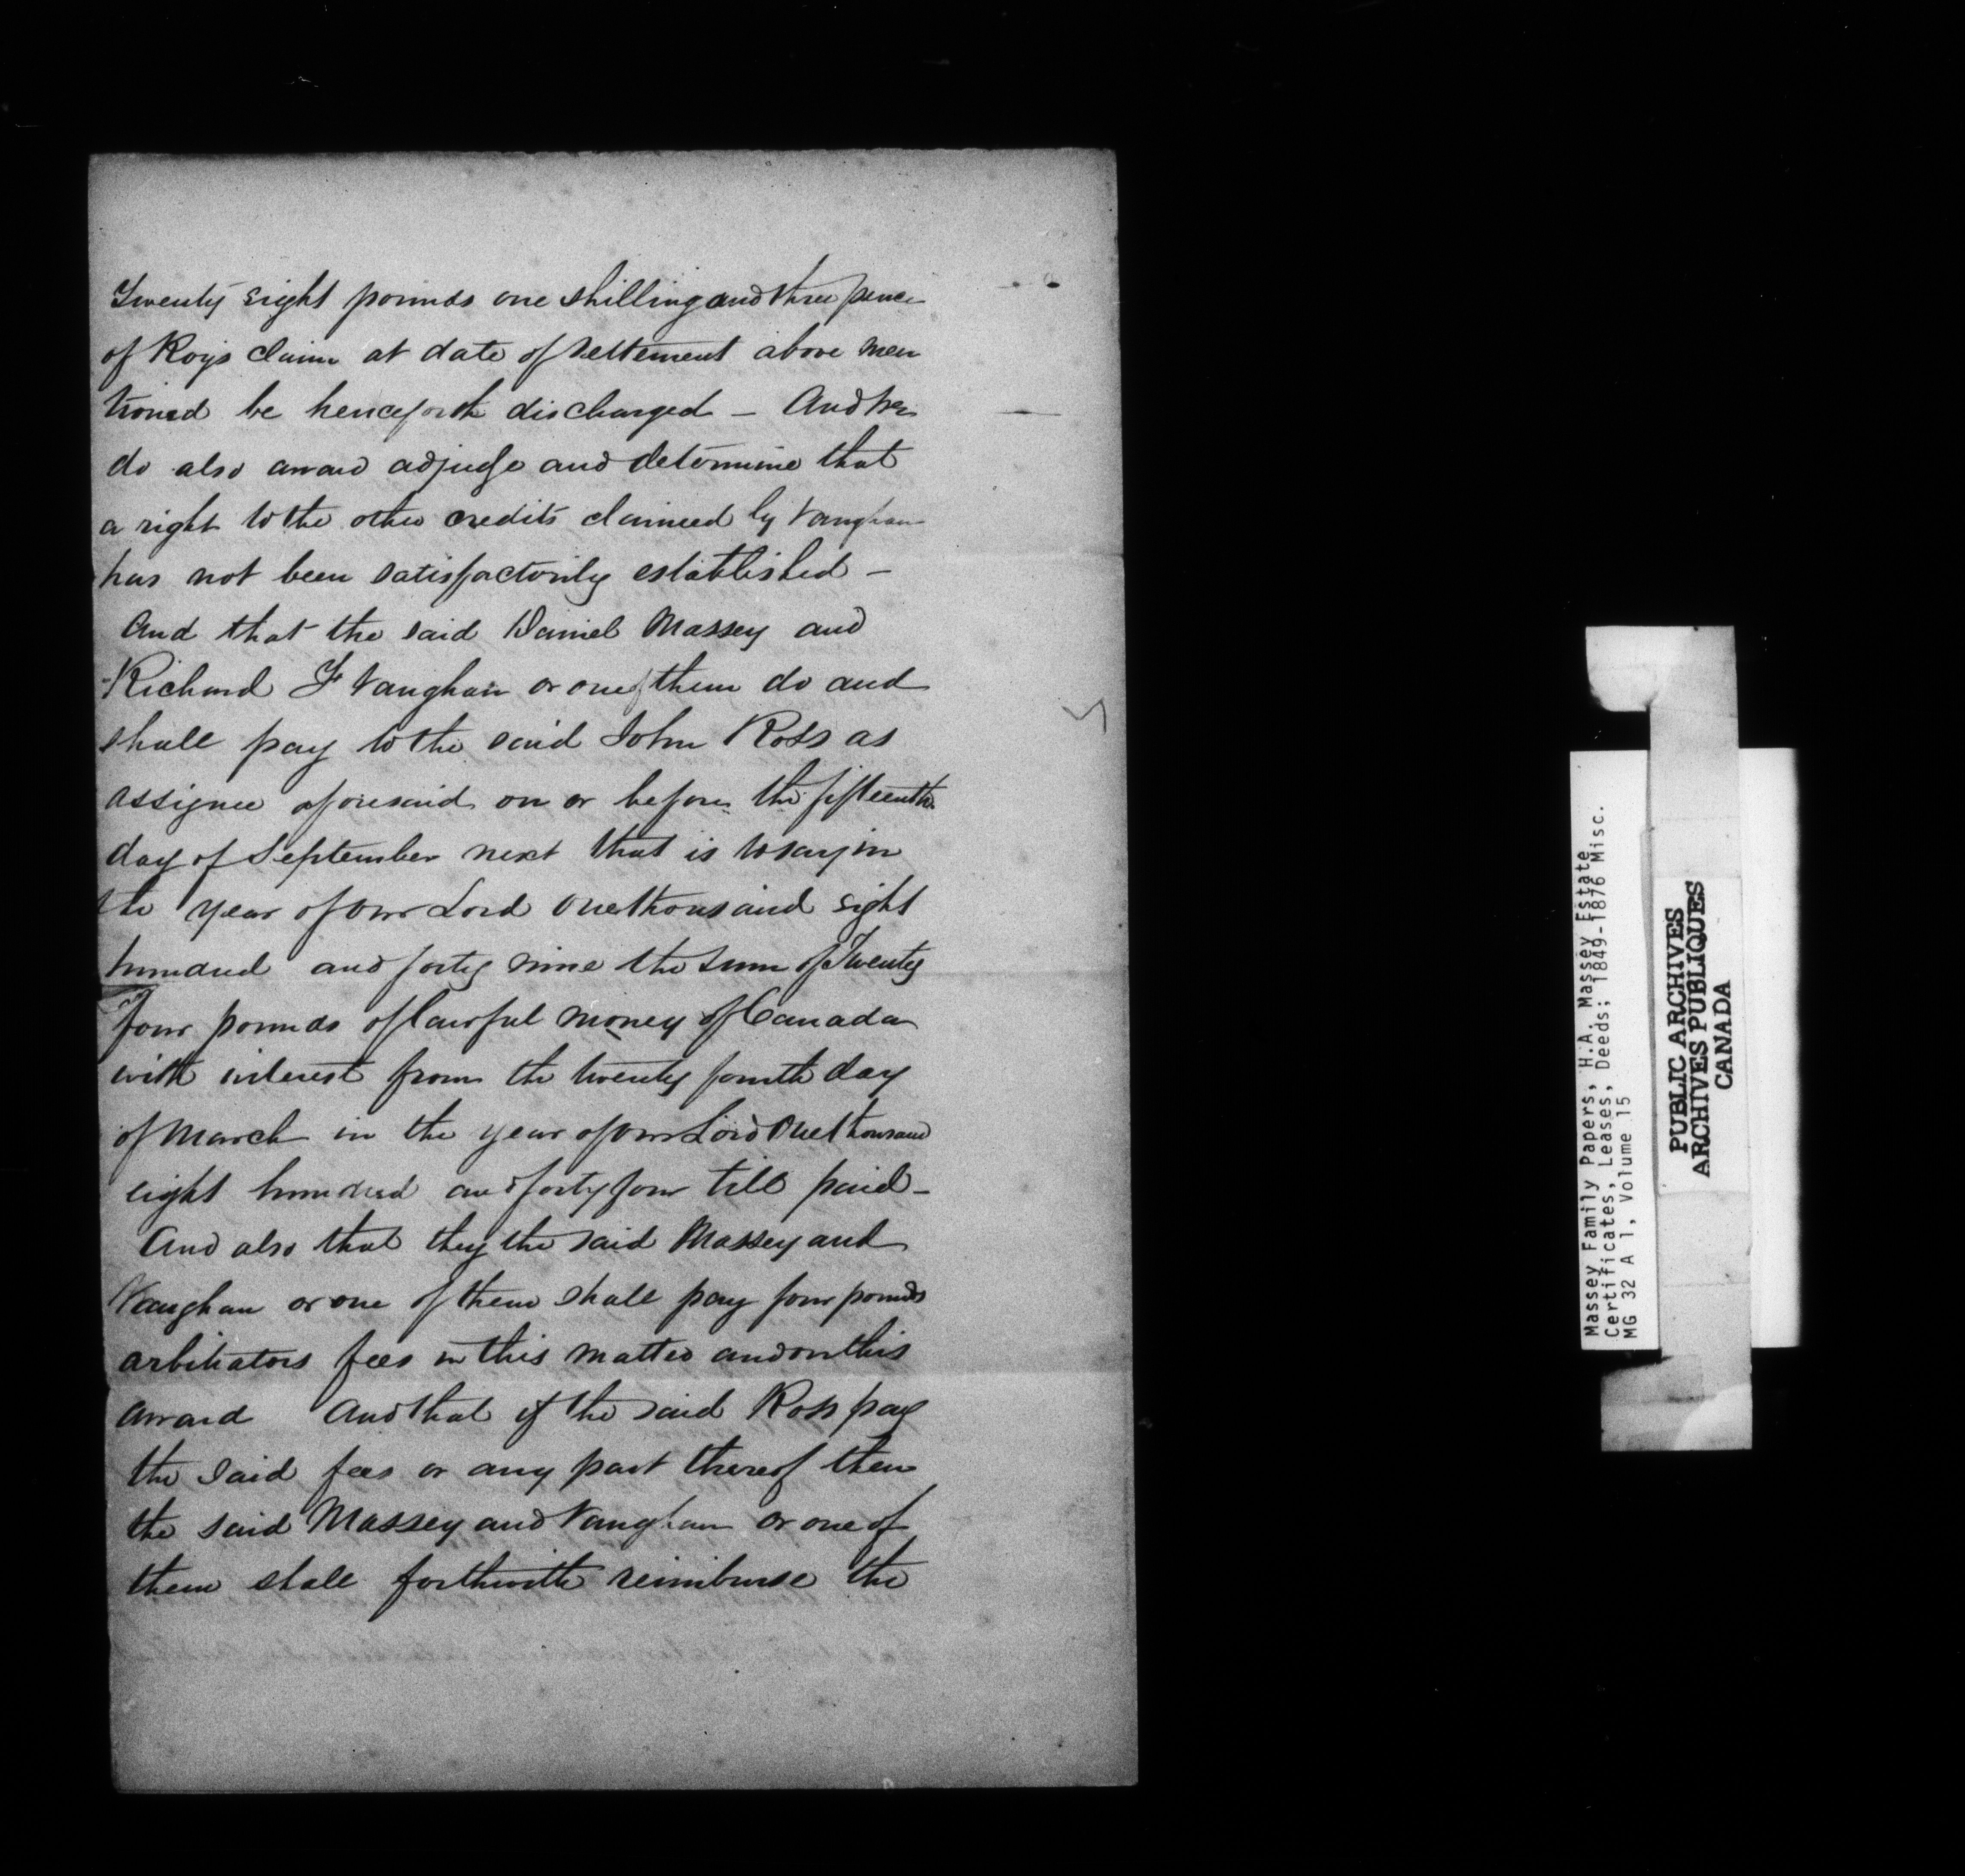 Twenty eight pounds one shilling and three pence
of Roys claim at date of settlement above men
tioned be henceforth discharged – And we
do also award adjudge and determine that
a right to the other credits claimed by Vaughan
has not been satisfactorily established –
And that the said Daniel Massey and
Richard F Vaughan or one of them do and
shall pay to the said John Ross as
assignee aforesaid on or before the fifteenth
day of September next that is to say in
the year of our Lord one thousand eight
hundred and forty nine the sum of Twenty
four pounds of lawful money of Canada
with interest from the twenty fourth day
of March in the year of our Lord one thousand
eight hundred and forty four till paid –
And also that they the said Massey and
Vaughan or one of them shall pay four pounds
arbitrators fees in this matter and on this
award And that if the said Ross pay
the said fees or any part thereof then
the said Massey and Vaughan or one of
them shall forthwith reimburse the
Massey Family Papers, H.A. Massey Estate
Certificates, Leases, Deeds; 1849-1876 Misc.
MG 32 A 1, Volume 15
PUBLIC ARCHIVES
ARCHIVES PUBLIQUES
CANADA